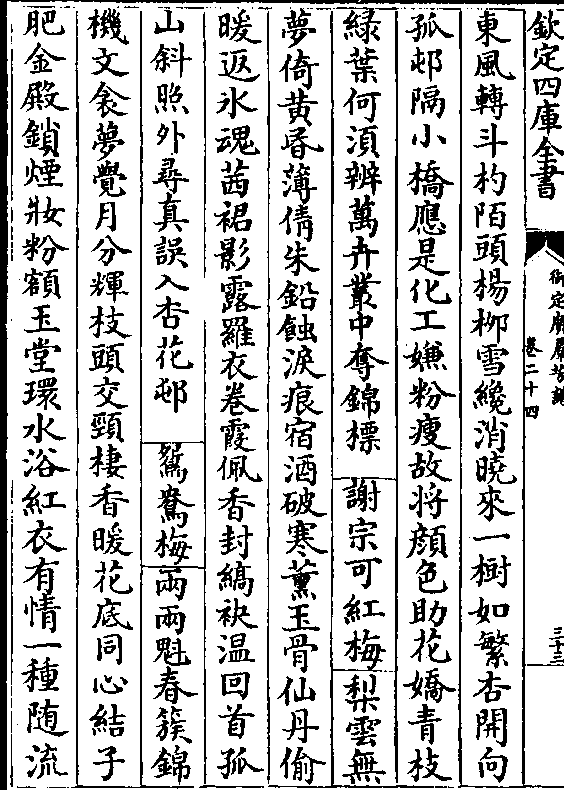 欽定四庫全書
御定廣羣芳譜
卷二十四
三十三
東風轉斗杓陌頭楊栁雪纔消曉來一樹如繁杏開向
孤邨隔小橋應是化工嫌粉瘦故将顔色助花嬌青枝
緑葉何須辨萬卉叢中奪錦標　謝宗可紅梅梨雲無
夢倚黄昏薄倩朱鉛蝕淚痕宿酒破寒薫玉骨仙丹偷
暖返氷魂茜裙影露羅衣卷霞佩香封縞袂温回首孤
山斜照外尋真誤入杏花邨　鴛鴦梅兩兩魁春簇錦
機文衾夢覺月分輝枝頭交頸棲香暖花底同心結子
肥金殿鎖煙妝粉額玉堂環水浴紅衣有情一種随流